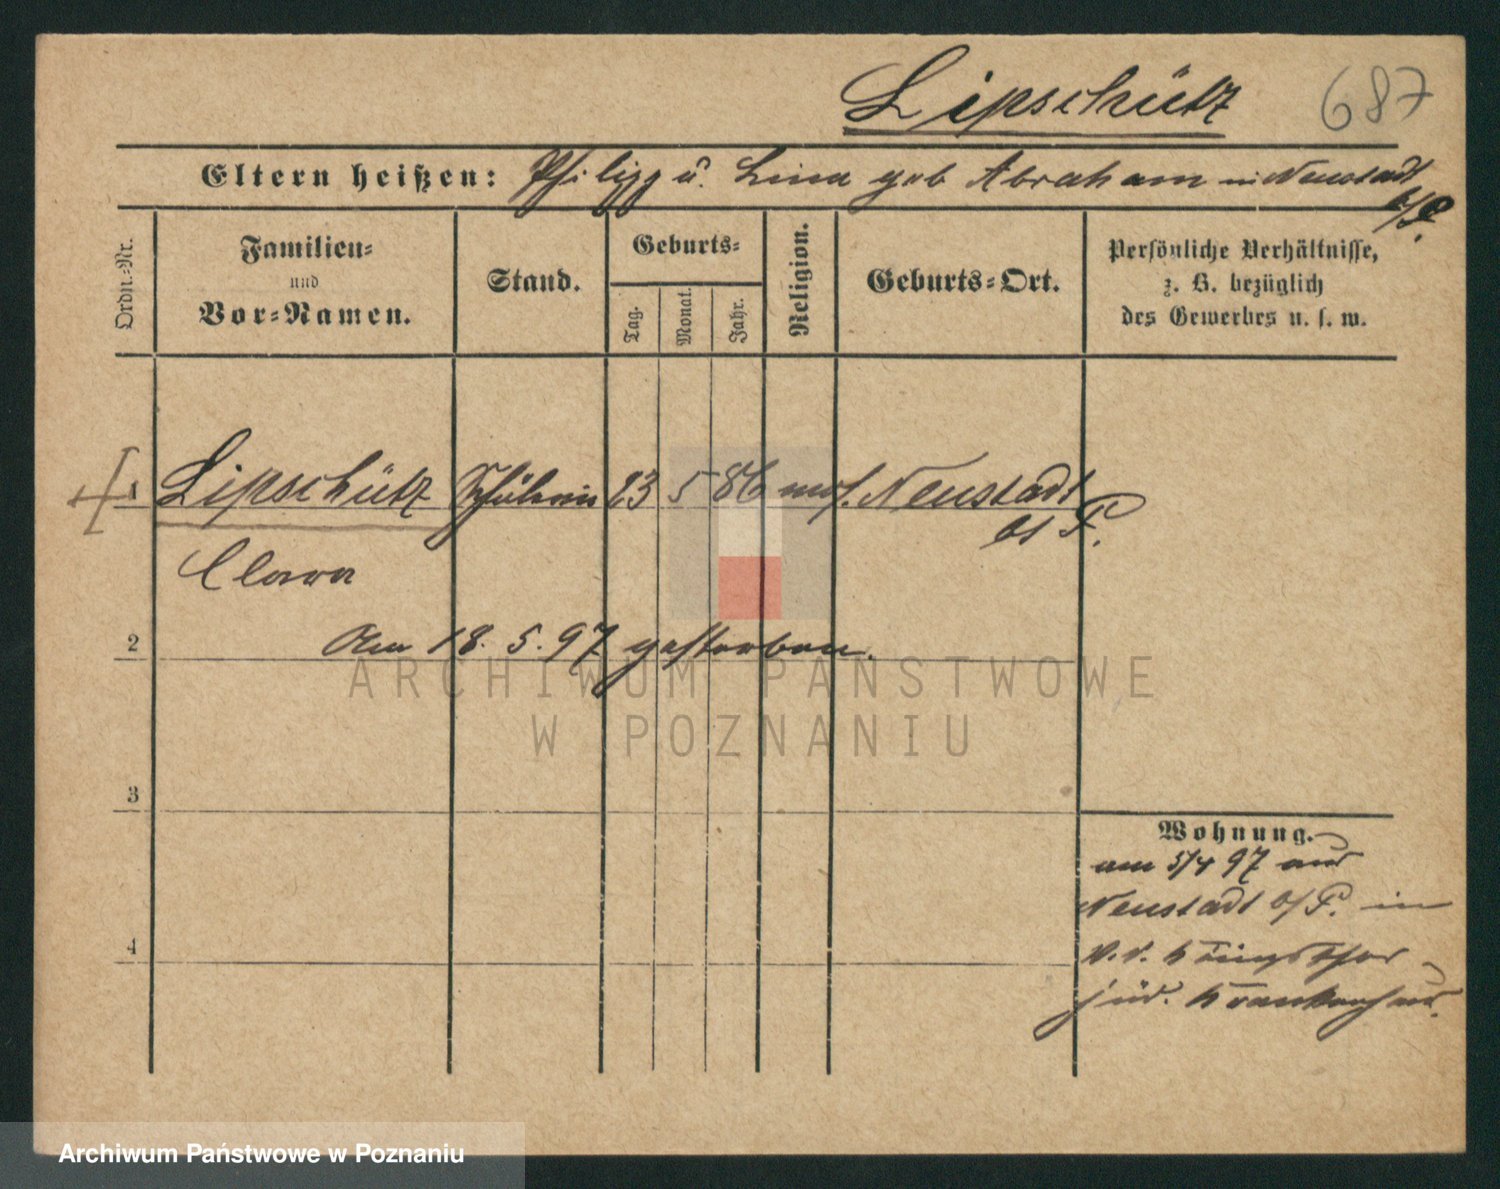 Lipschütz 687
Eltern heißen: Philipp u. Lina geb Abraham in Neustadt
b/P.
Ordn.-Nr.
Familien-
und
Vor-Namen.
Stand.
Geburts-
Tag.
Monat.
Jahr.
Religion.
Geburts-Ort.
Persönliche Verhältnisse,
z. B. bezüglich
des Gewerbes u. s. w.
1 Lipschütz Schülerin 23 5 86 mos. Neustadt
b/ P.
Clara
2 Am 18. 5. 97 gestorben.
ARCHIWUM PAŃSTWOWE
W POZNANIU
3
Wohnung.
am 5/4 97 aus
Neustadt b/P. in
v. d. Königsthor
jüd. Krankenhaus.
4
Archiwum Państwowe w Poznaniu